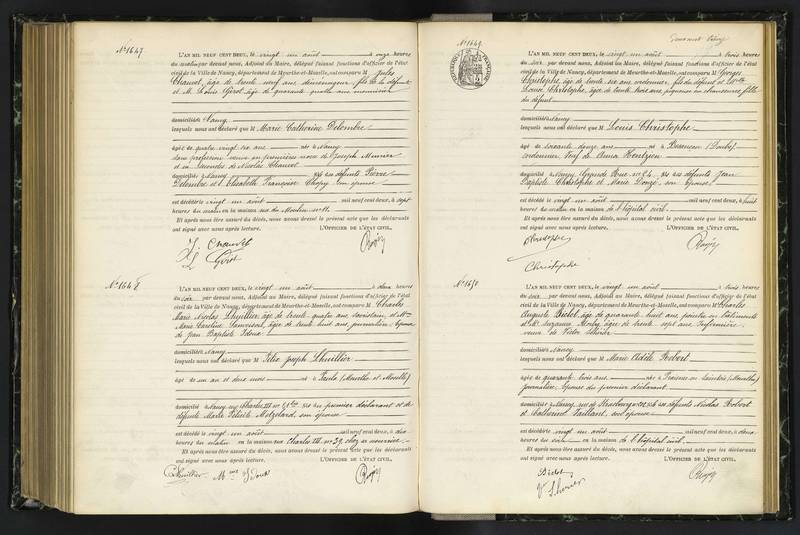 N° 1647
L'AN MIL NEUF CENT DEUX, le vingt un août à onze heures
du matin par devant nous, Adjoint au Maire, délégué faisant fonctions d'officier de l'état
civil de la Ville de Nancy, département de Meurthe-et-Moselle, ont comparu M Jules
Chauvet, âgé de trente neuf ans, déménageur, fils de la défunte
et M. Louis Girot âgé de quarante quatre ans
domiciliés Nancy
lesquels nous ont déclaré que M Marie Catherine Delombre
âgée de quatre vingt six ans née à Nancy
sans profession veuve en premières noces de Joseph Munier
et en secondes de Nicolas Chauvet
domiciliée Nancy fille des défunts Pierre
Delombre et Elisabeth Françoise Chopy son épouse
est décédée vingt un août mil neuf cent deux, à sept
heures du matin en la maison rue du Moulin n° 11.
Et après nous être assuré du décès, nous avons dressé le présent acte que les déclarants
ont signé avec nous après lecture. L'OFFICIER DE L'ÉTAT CIVIL,
J. Chauvet
L Girot
N° 1648
L'AN MIL NEUF CENT DEUX, le vingt un août à deux heures
du soir par devant nous, Adjoint au Maire, délégué faisant fonctions d'officier de l'état
civil de la Ville de Nancy, département de Meurthe-et-Moselle, ont comparu M Charles
Marie Nicolas Lhuillier, âgé de trente quatre ans, et Mme
Marie Caroline âgée de trente huit ans, journalière, épouse
de Jean Baptiste Idoux
domiciliés Nancy
lesquels nous ont déclaré que M Félix Joseph Lhuillier
âgé de un an et deux mois né à (Meurthe et Moselle)
domicilié Nancy rue Charles III n° fils du premier déclarant et de
défunte Marie Félicité Metzelard, son épouse
est décédé le vingt un août mil neuf cent deux, à dix
heures du matin en la maison rue Charles III, n° 39, chez sa nourrice.
Et après nous être assuré du décès, nous avons dressé le présent acte que les déclarants
ont signé avec nous après lecture. L'OFFICIER DE L'ÉTAT CIVIL,
C. Lhuillier Mme Idoux
N° 1649
RÉPUBLIQUE FRANÇAISE
L'AN MIL NEUF CENT DEUX, le vingt un août à trois heures
du soir par devant nous, Adjoint au Maire, délégué faisant fonctions d'officier de l'état
civil de la Ville de Nancy, département de Meurthe-et-Moselle, ont comparu M Georges
Christophe, âgé de trente six ans cordonnier, fils du défunt et
Louise Christophe, âgée de trente trois ans, piqueuse en chaussures fille
du défunt
domiciliés Nancy
lesquels nous ont déclaré que M Louis Christophe
âgé de soixante douze ans né à Besançon (Doubs)
cordonnier veuf de Anna Hentzien
domicilié Nancy, Grande Rue n° 84 fils des défunts Jean
Baptiste Christophe et Marie Donzé, son épouse
est décédé le vingt un août mil neuf cent deux, à huit
heures du matin en la maison de l'hôpital civil.
Et après nous être assuré du décès, nous avons dressé le présent acte que les déclarants
ont signé avec nous après lecture. L'OFFICIER DE L'ÉTAT CIVIL,
Christophe
Christophe
N° 1650
L'AN MIL NEUF CENT DEUX, le vingt un août à trois heures
du soir par devant nous, Adjoint au Maire, délégué faisant fonctions d'officier de l'état
civil de la Ville de Nancy, département de Meurthe-et-Moselle, ont comparu M Charles
Auguste Bidot, âgé de quarante huit ans peintre en bâtiments
et Me Suzanne âgée de trente sept ans Infirmière
veuve de Victor
domiciliés Nancy
lesquels nous ont déclaré que M Marie Adèle Robert
âgée de quarante trois ans née à (Meurthe)
journalière, épouse du premier déclarant
domiciliée Nancy, rue de Strasbourg fille des défunts Nicolas Robert
et Catherine Vaillant, son épouse
est décédée vingt un août mil neuf cent deux, à deux
heures du soir en la maison de l'hôpital civil.
Et après nous être assuré du décès, nous avons dressé le présent acte que les déclarants
ont signé avec nous après lecture. L'OFFICIER DE L'ÉTAT CIVIL,
Bidot